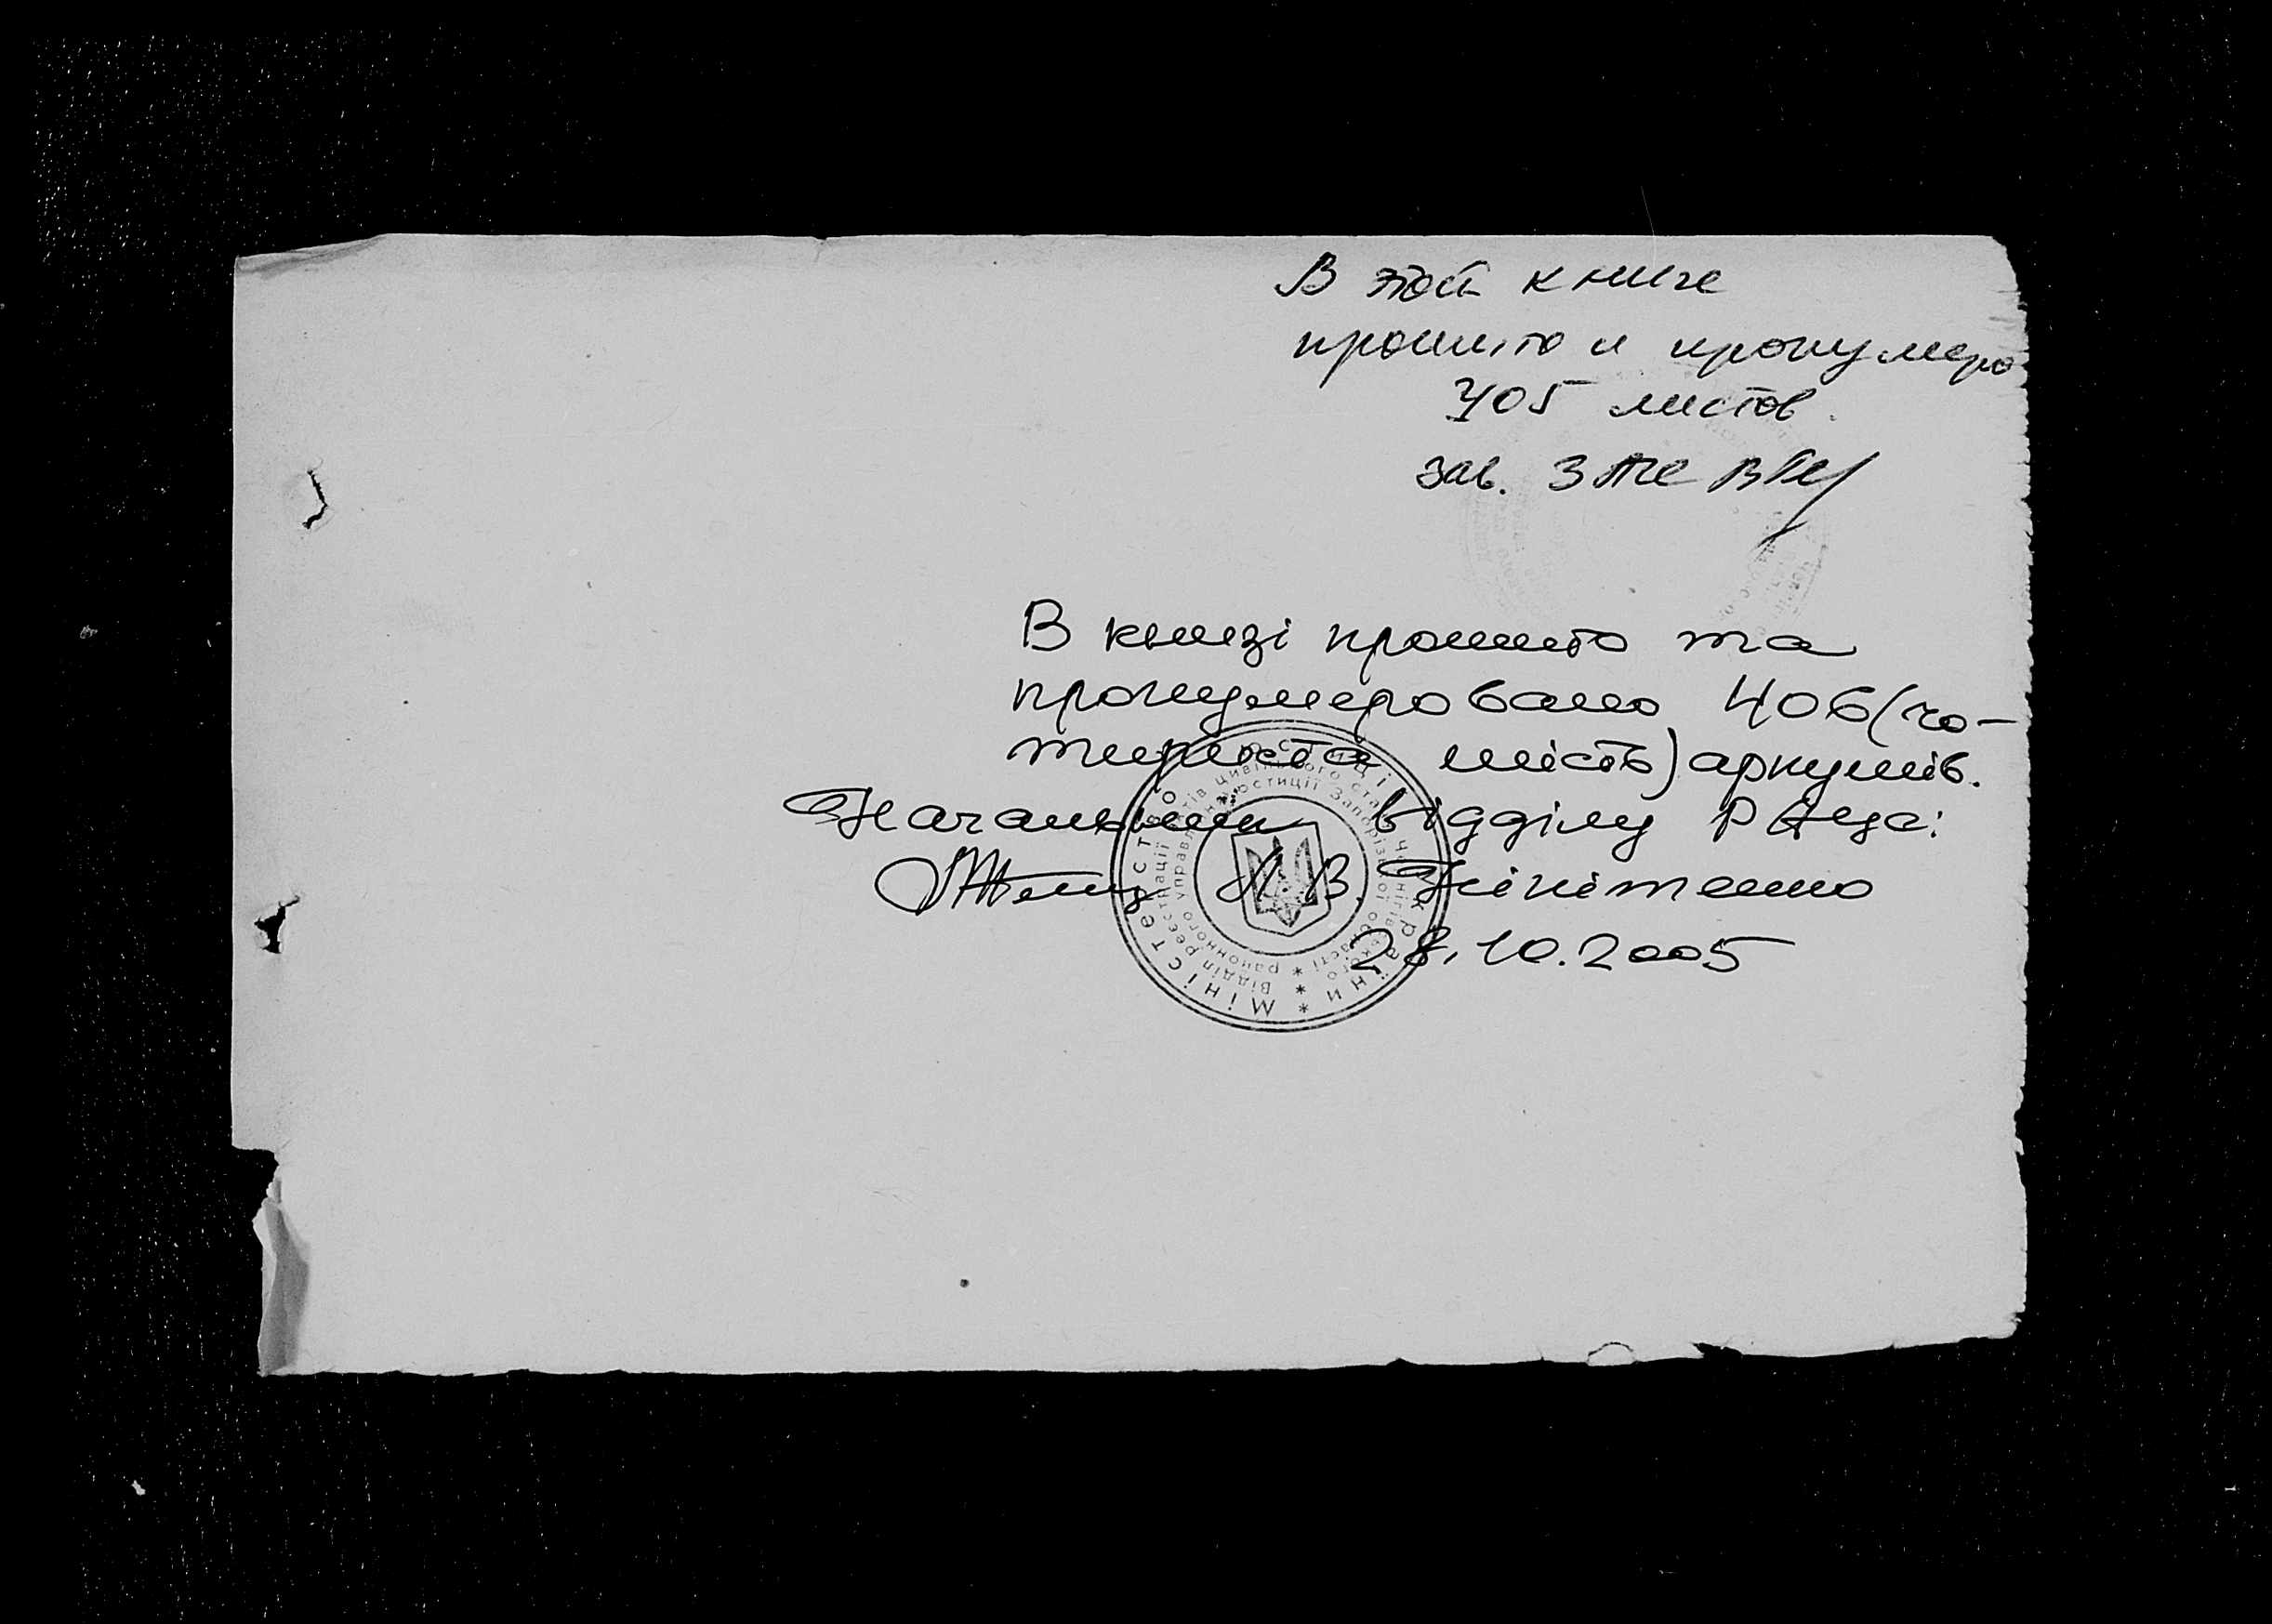 В этой книге
прошито и пронумеро
405 листов
зав. ЗАГС
В книзі прошито та
пронумеровано 406 (чо-
тириста шість) аркушів.
Начальник відділу РАЦС:
В. Нікітенко
28.10.2005
Міністерство юстиції України
Відділ реєстрації актів цивільного стану Чернігівського
районного управління юстиції Запорізької області